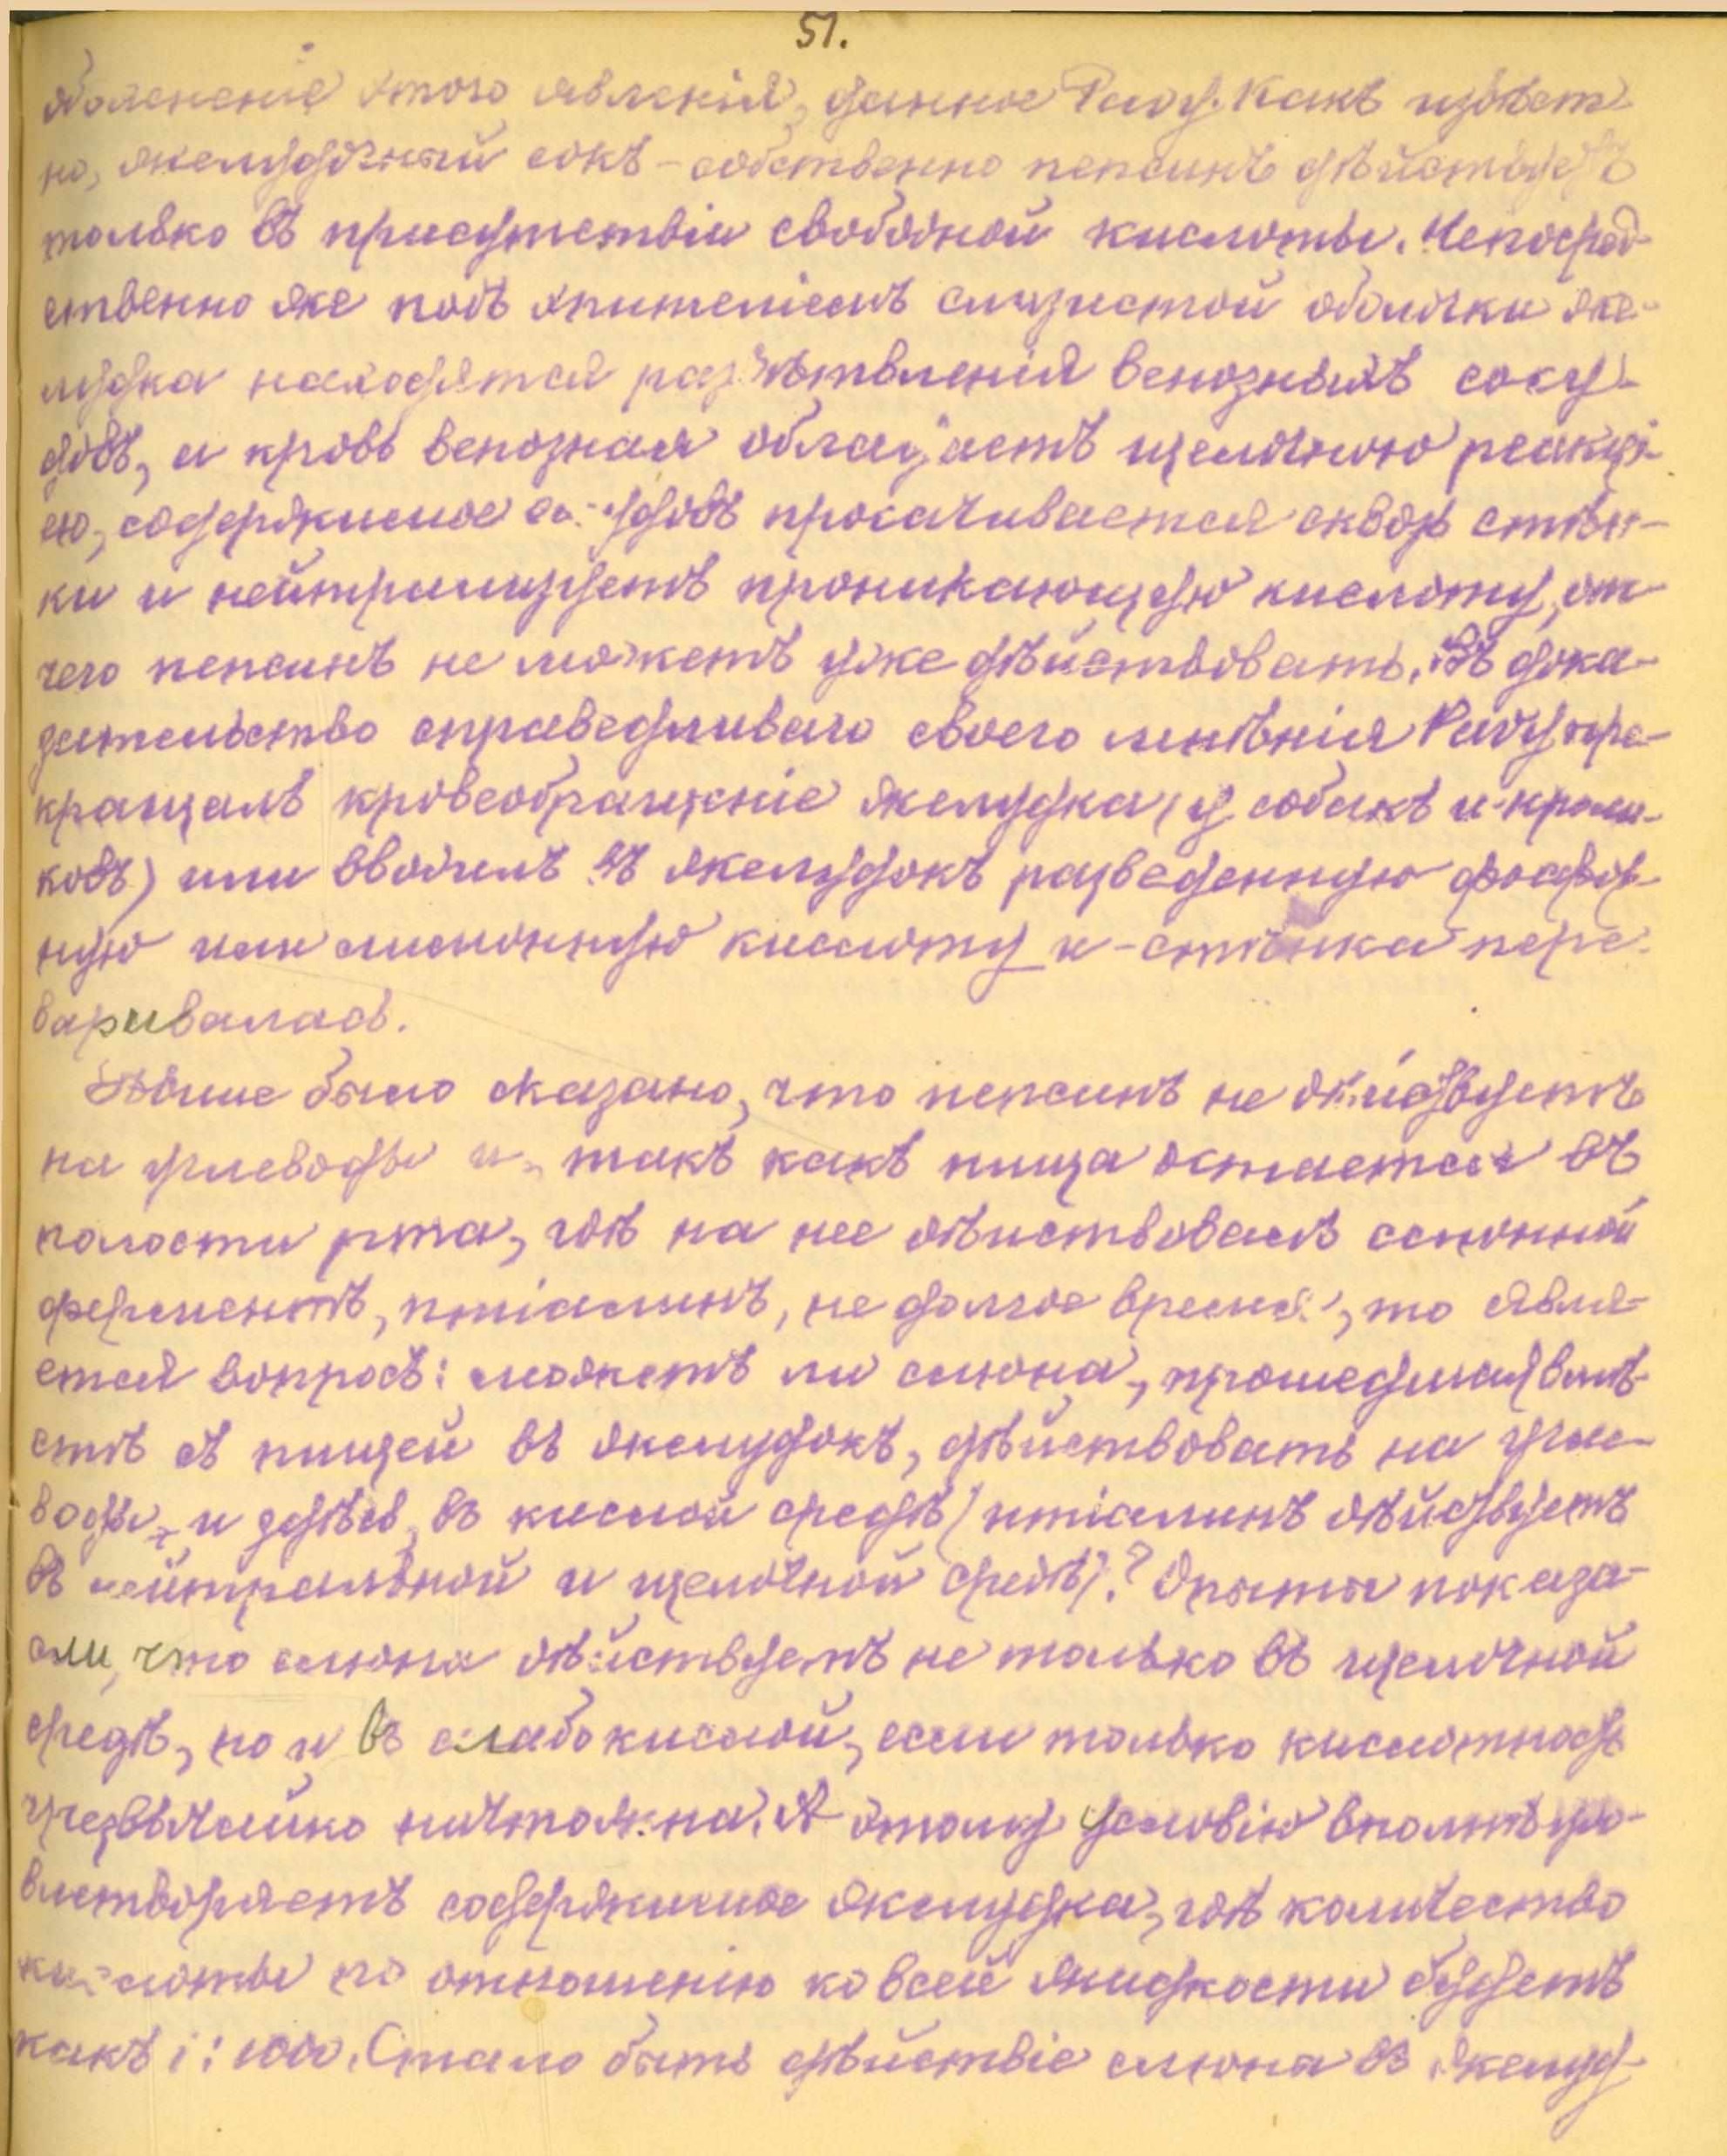 51.
объясненіе этого явленія, данное Pavy. Какъ извѣст-
но, желудочный сокъ - собственно пепсинъ дѣйствуетъ
только въ присутствіи свободной кислоты. Непосред-
ственно же подъ эпителіемъ слизистой оболочки же-
лудка находятся развѣтвленія венозныхъ сосу-
довъ, и кровь венозная обладаетъ щелочною реакці-
ею, содержимое сосудовъ просачивается сквозь стѣн-
ки и нейтрализуетъ проникающую кислоту, от-
чего пепсинъ не можетъ уже дѣйствовать. Въ дока-
зательство справедливаго своего мнѣнія Pavy пре-
кращалъ кровеобращеніе желудка (у собакъ и кроли-
ковъ) или вводилъ въ желудокъ разведенную фосфор-
ную или лимонную кислоту и - стѣнка пере-
варивалась.
Выше было сказано, что пепсинъ не дѣйствуетъ
на углеводы и, такъ какъ пища остается въ
полости рта, гдѣ на нее дѣйствовалъ слюнной
ферментъ, птіалинъ, не долгое время, то явля-
ется вопросъ: можетъ ли слюна, прошедшая вмѣ-
стѣ съ пищей въ желудокъ, дѣйствовать на угле-
воды и здѣсь, въ кислой средѣ (птіалинъ дѣйствуетъ
въ нейтральной и щелочной средѣ)? Опыты показа-
ли, что слюна дѣйствуетъ не только въ щелочной
средѣ, но и въ слабокислой, если только кислотность
чрезвычайно ничтожна. А этому условію вполнѣ удо-
влетворяетъ содержимое желудка, гдѣ количество
кислоты по отношенію ко всей жидкости будетъ
какъ 1: 1000. Стало быть дѣйствіе слюна въ желуд-